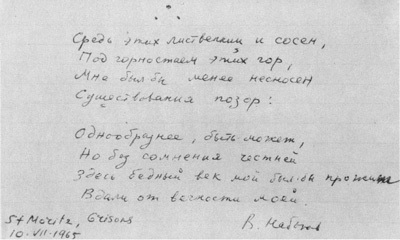 Средь этих лиственниц и сосен,
Под горностаем этих гор,
Мне был-бы менее несносен
Существования позор:
Однообразнее, быть может,
Но без сомнения честней
Здесь бедный век мой был-бы прожит
Вдали от вечности моей.
St Moritz, Grisons
10-VII-1965
В. Набоков